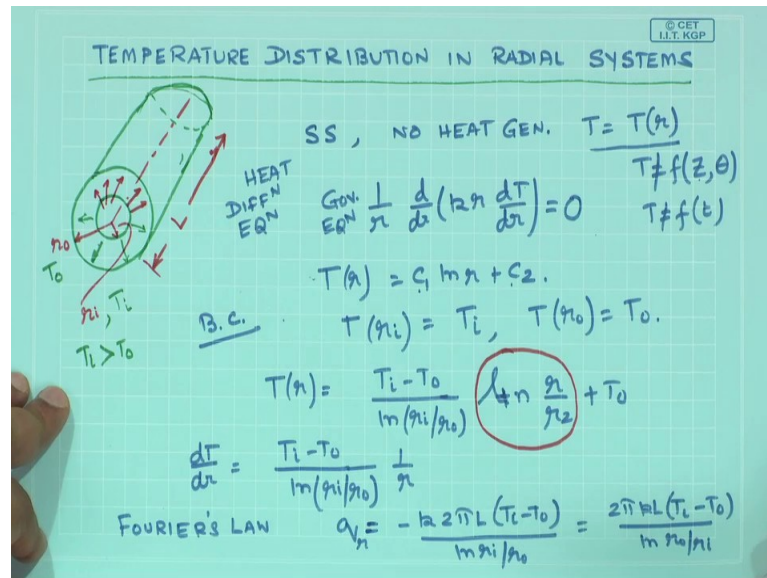 © CET
I.I.T. KGP
TEMPERATURE DISTRIBUTION IN RADIAL SYSTEMS
SS, NO HEAT GEN. T = T(r)
T ≠ f(Z, θ)
T ≠ f(t)
HEAT
DIFFN
EQN
Gov.
EQN
1/r d/dr (kr dT/dr) = 0
L
ro
To
ri, Ti
Ti > To
T(r) = C1 ln r + C2.
B.C. T(ri) = Ti, T(ro) = To.
T(r) = (Ti - To)/(ln(ri/ro)) ln r/r2 + To
dT/dr = (Ti - To)/(ln(ri/ro)) 1/r
FOURIER'S LAW qr = - k 2πL (Ti - To)/(ln ri/ro) = 2πkL (Ti - To)/(ln ro/ri)